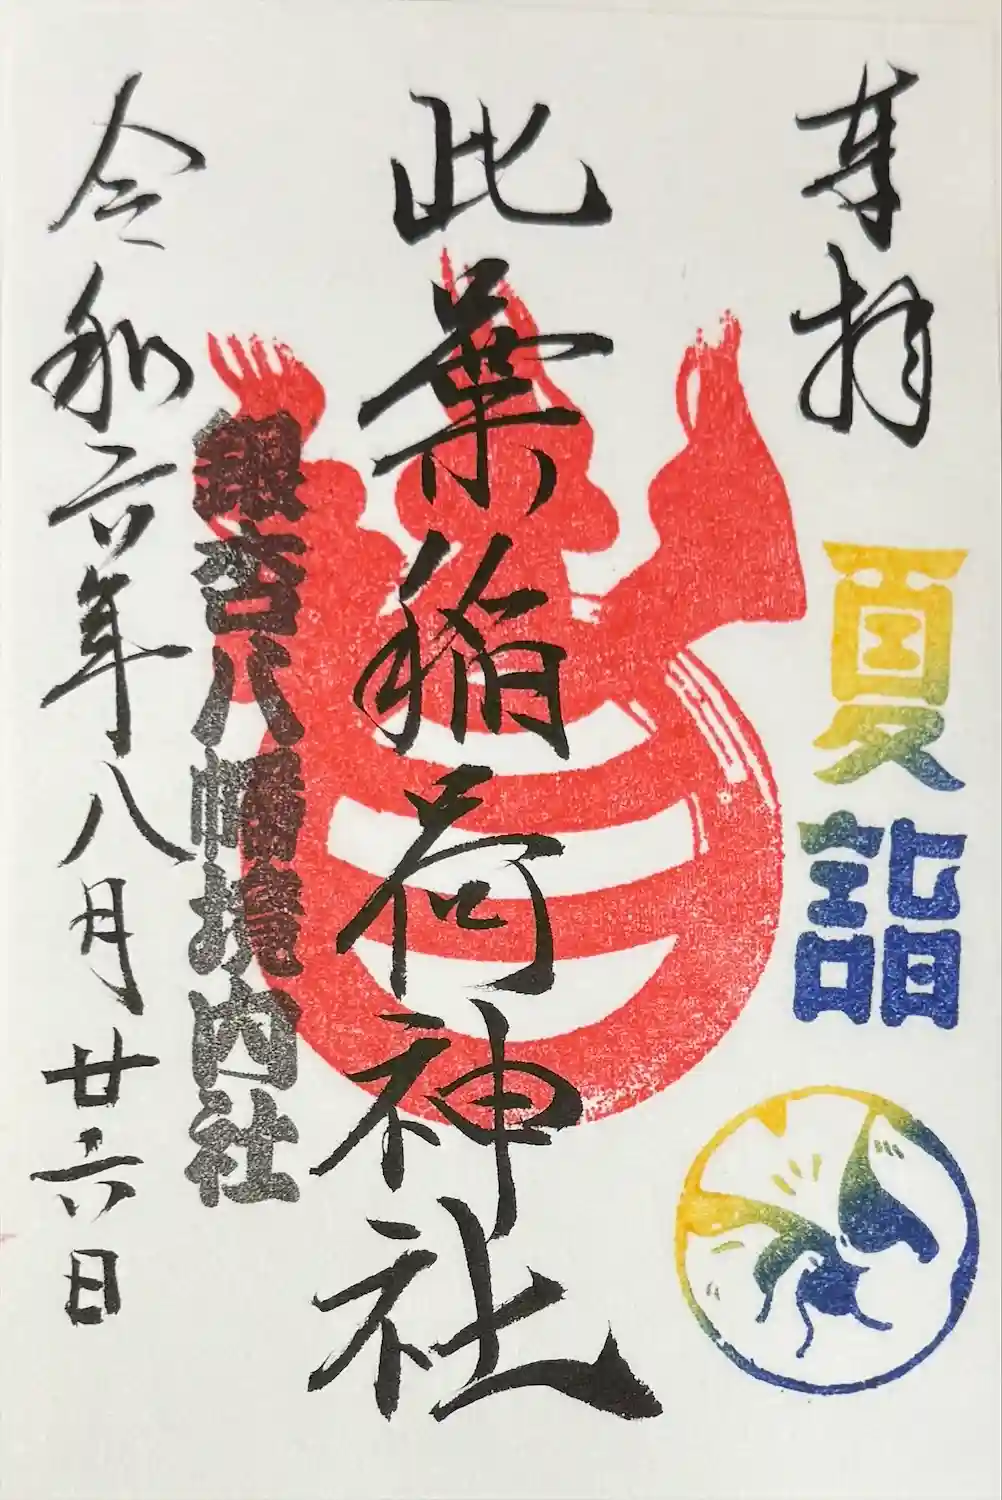 奉拝
夏詣
此葉稲荷神社
銀杏八幡境内社
令和六年八月廿六日